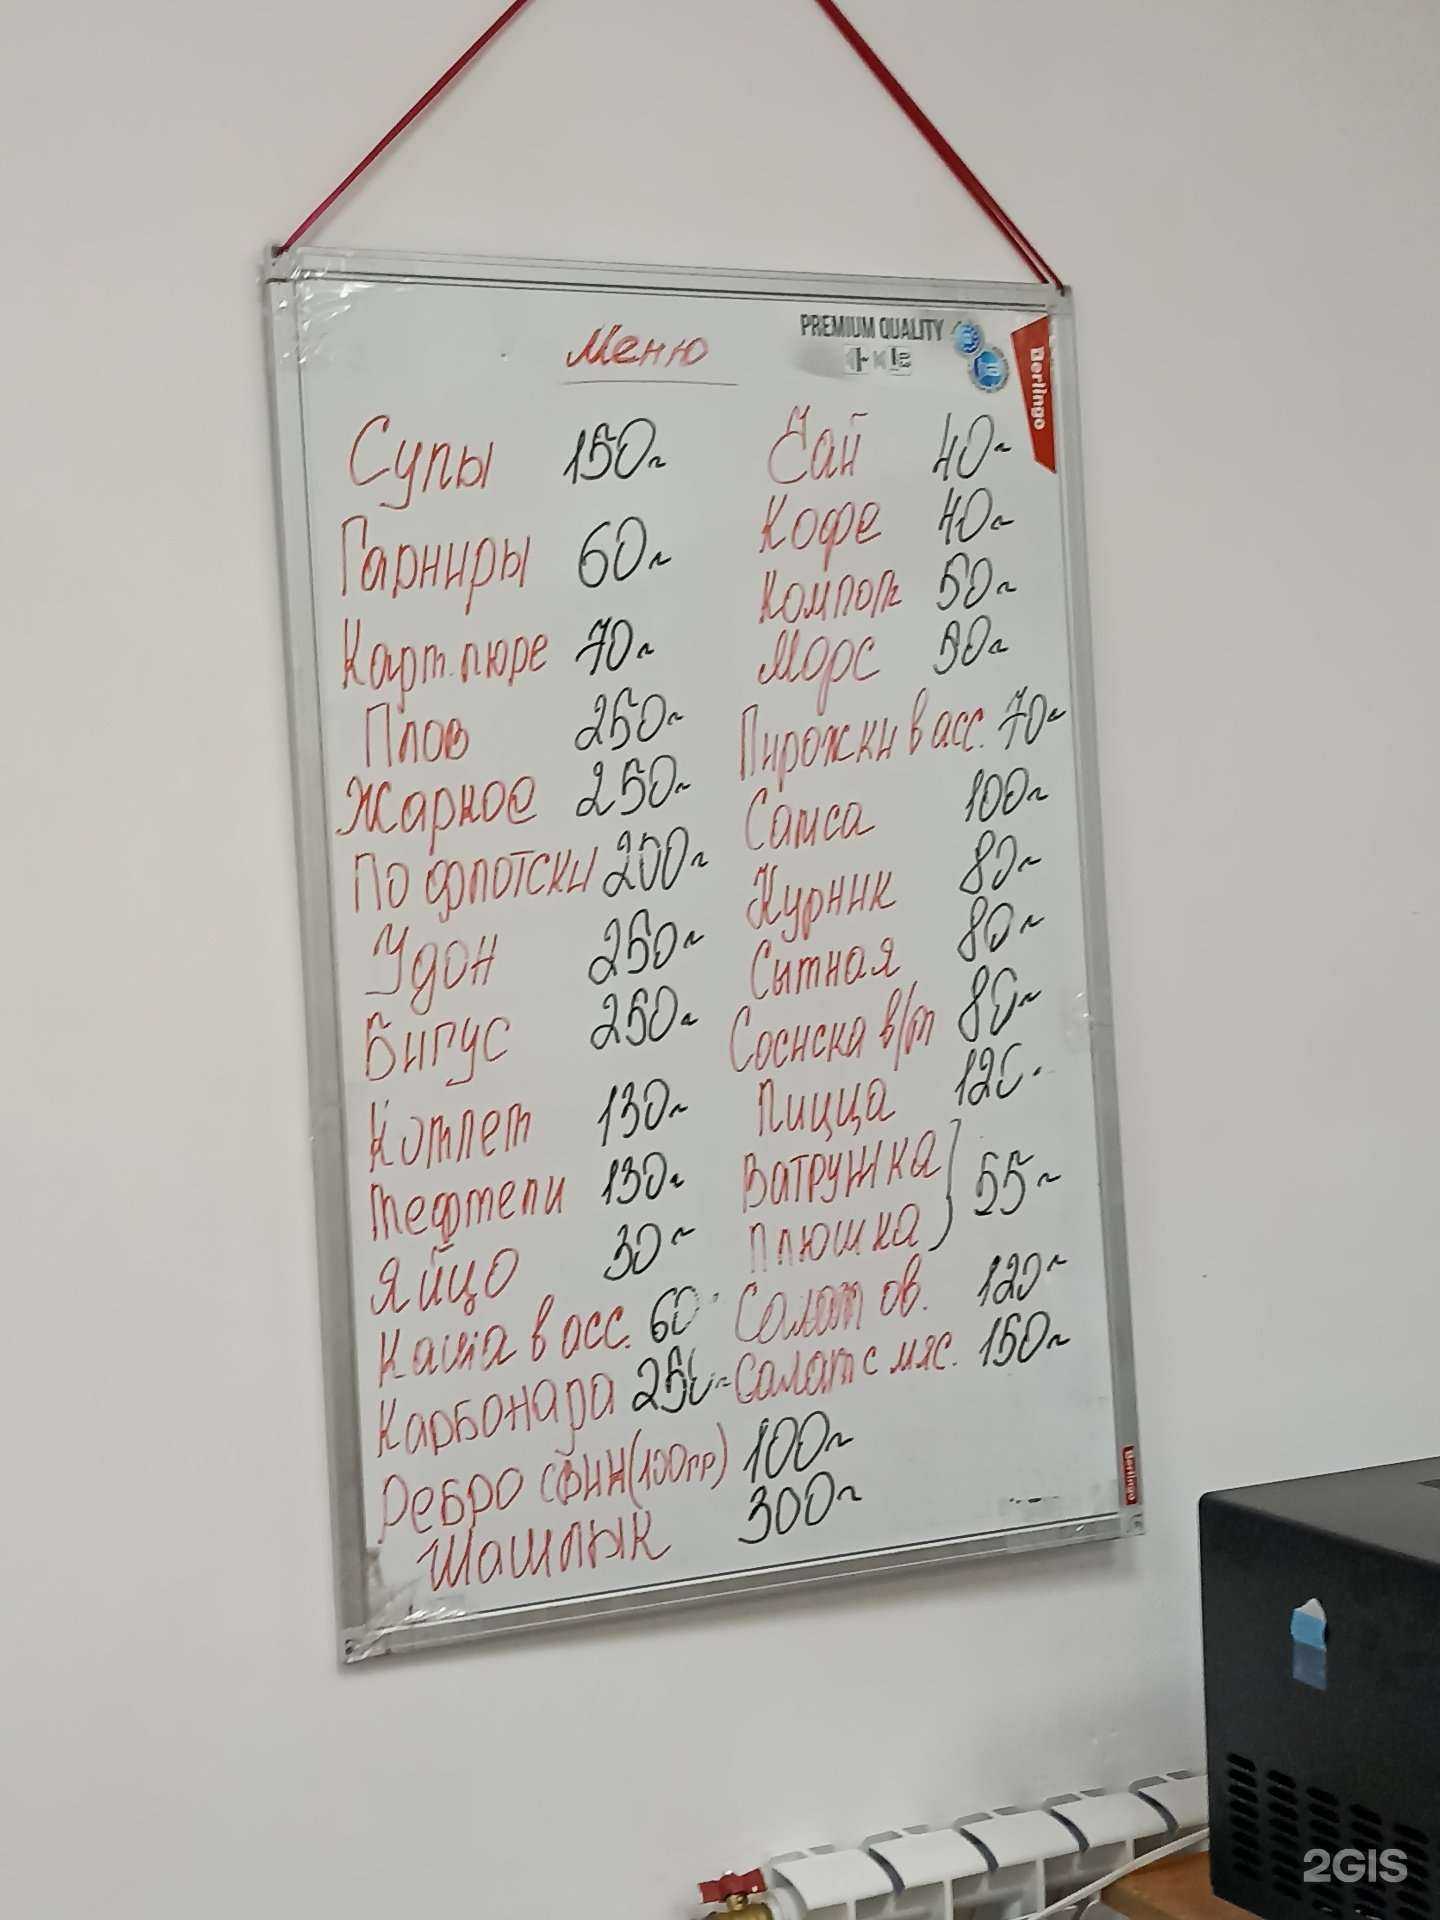 PREMIUM QUALITY
Berlingo
Меню
Супы 150~
Гарниры 60~
Карт. пюре 70~
Плов 250~
Жарное 250~
По флотски 200~
Удон 250~
Бигус 250~
Котлет 130~
Тефтели 130~
Яйцо 30~
Каша в асс. 60~
Карбонара 250~
Ребро свин (100гр) 100~
Шашлык 300~
Чай 40~
Кофе 40~
Компот 50~
Морс 50~
Пирожки в асс. 70~
Самса 100~
Курник 80~
Сытная 80~
Сосиска в/т 80~
Пицца 120~
Ватрушка } 55~
Плюшка
Салат ов. 120~
Салат с мяс. 150~
Berlingo
2GIS